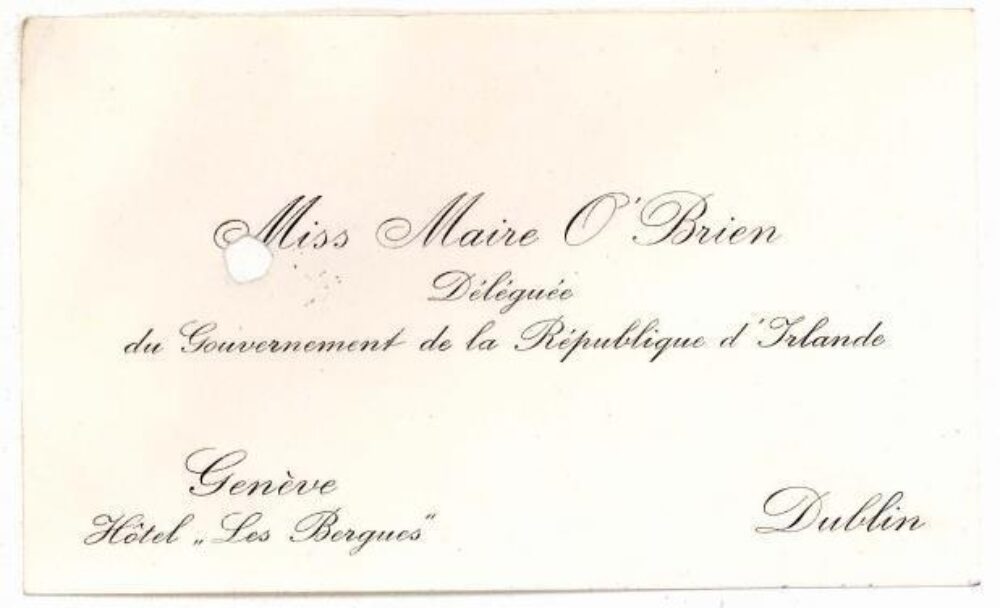 Miss Maire O'Brien
Déléguée
du Gouvernement de la République d'Irlande
Genève
Hôtel „Les Bergues"
Dublin